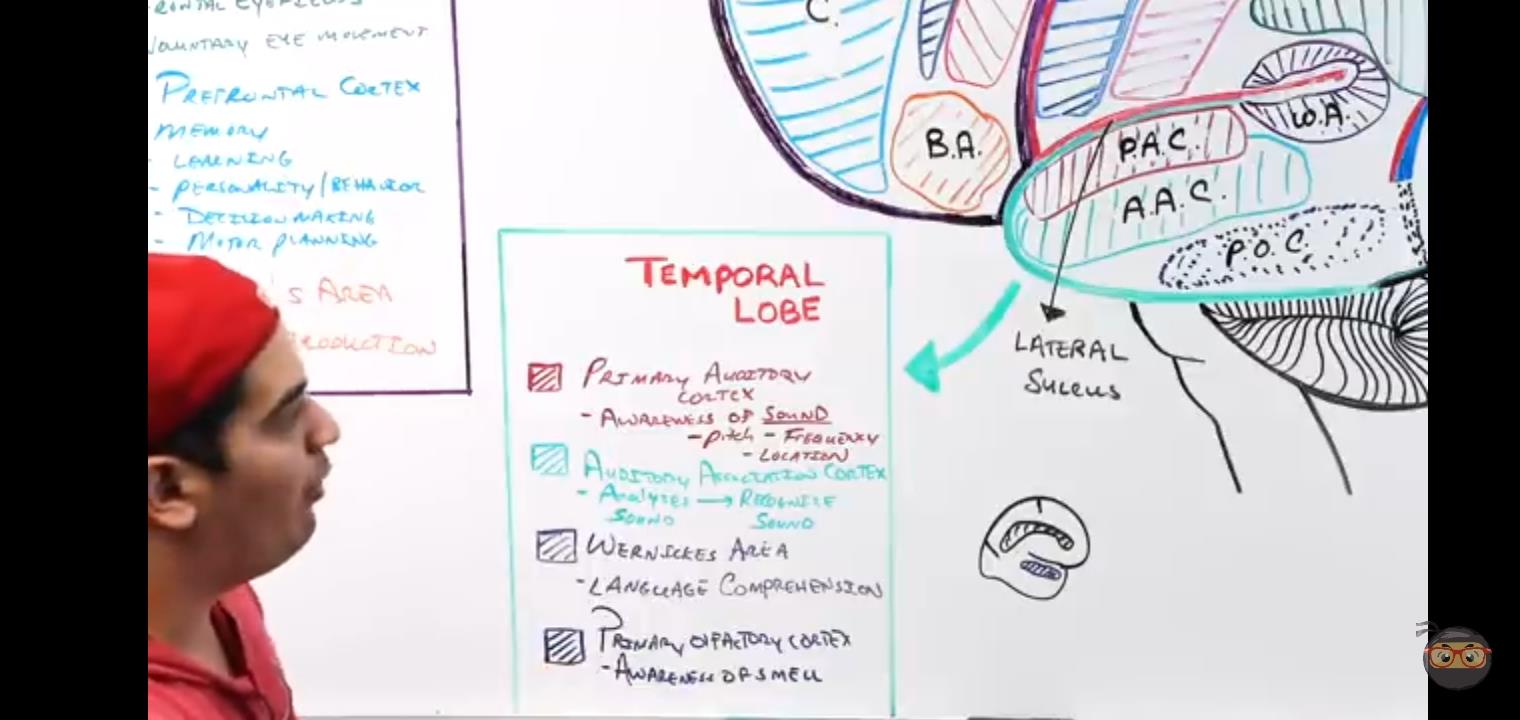 VOLUNTARY EYE MOVEMENT
PREFRONTAL CORTEX
MEMORY
- LEARNING
- PERSONALITY/BEHAVIOR
- DECISION MAKING
- MOTOR PLANNING
'S AREA
RODUCTION
C.
B.A.
P.A.C.
W.A.
A.A.C.
P.O.C.
LATERAL
SULCUS
TEMPORAL
LOBE
PRIMARY AUDITORY
CORTEX
- AWARENESS OF SOUND
- Pitch - FREQUENCY
- LOCATION
AUDITORY ASSOCIATION CORTEX
- Analyzes → RECOGNIZE
SOUND SOUND
WERNICKES AREA
- LANGUAGE COMPREHENSION
PRIMARY OLFACTORY CORTEX
- AWARENESS OF SMELL